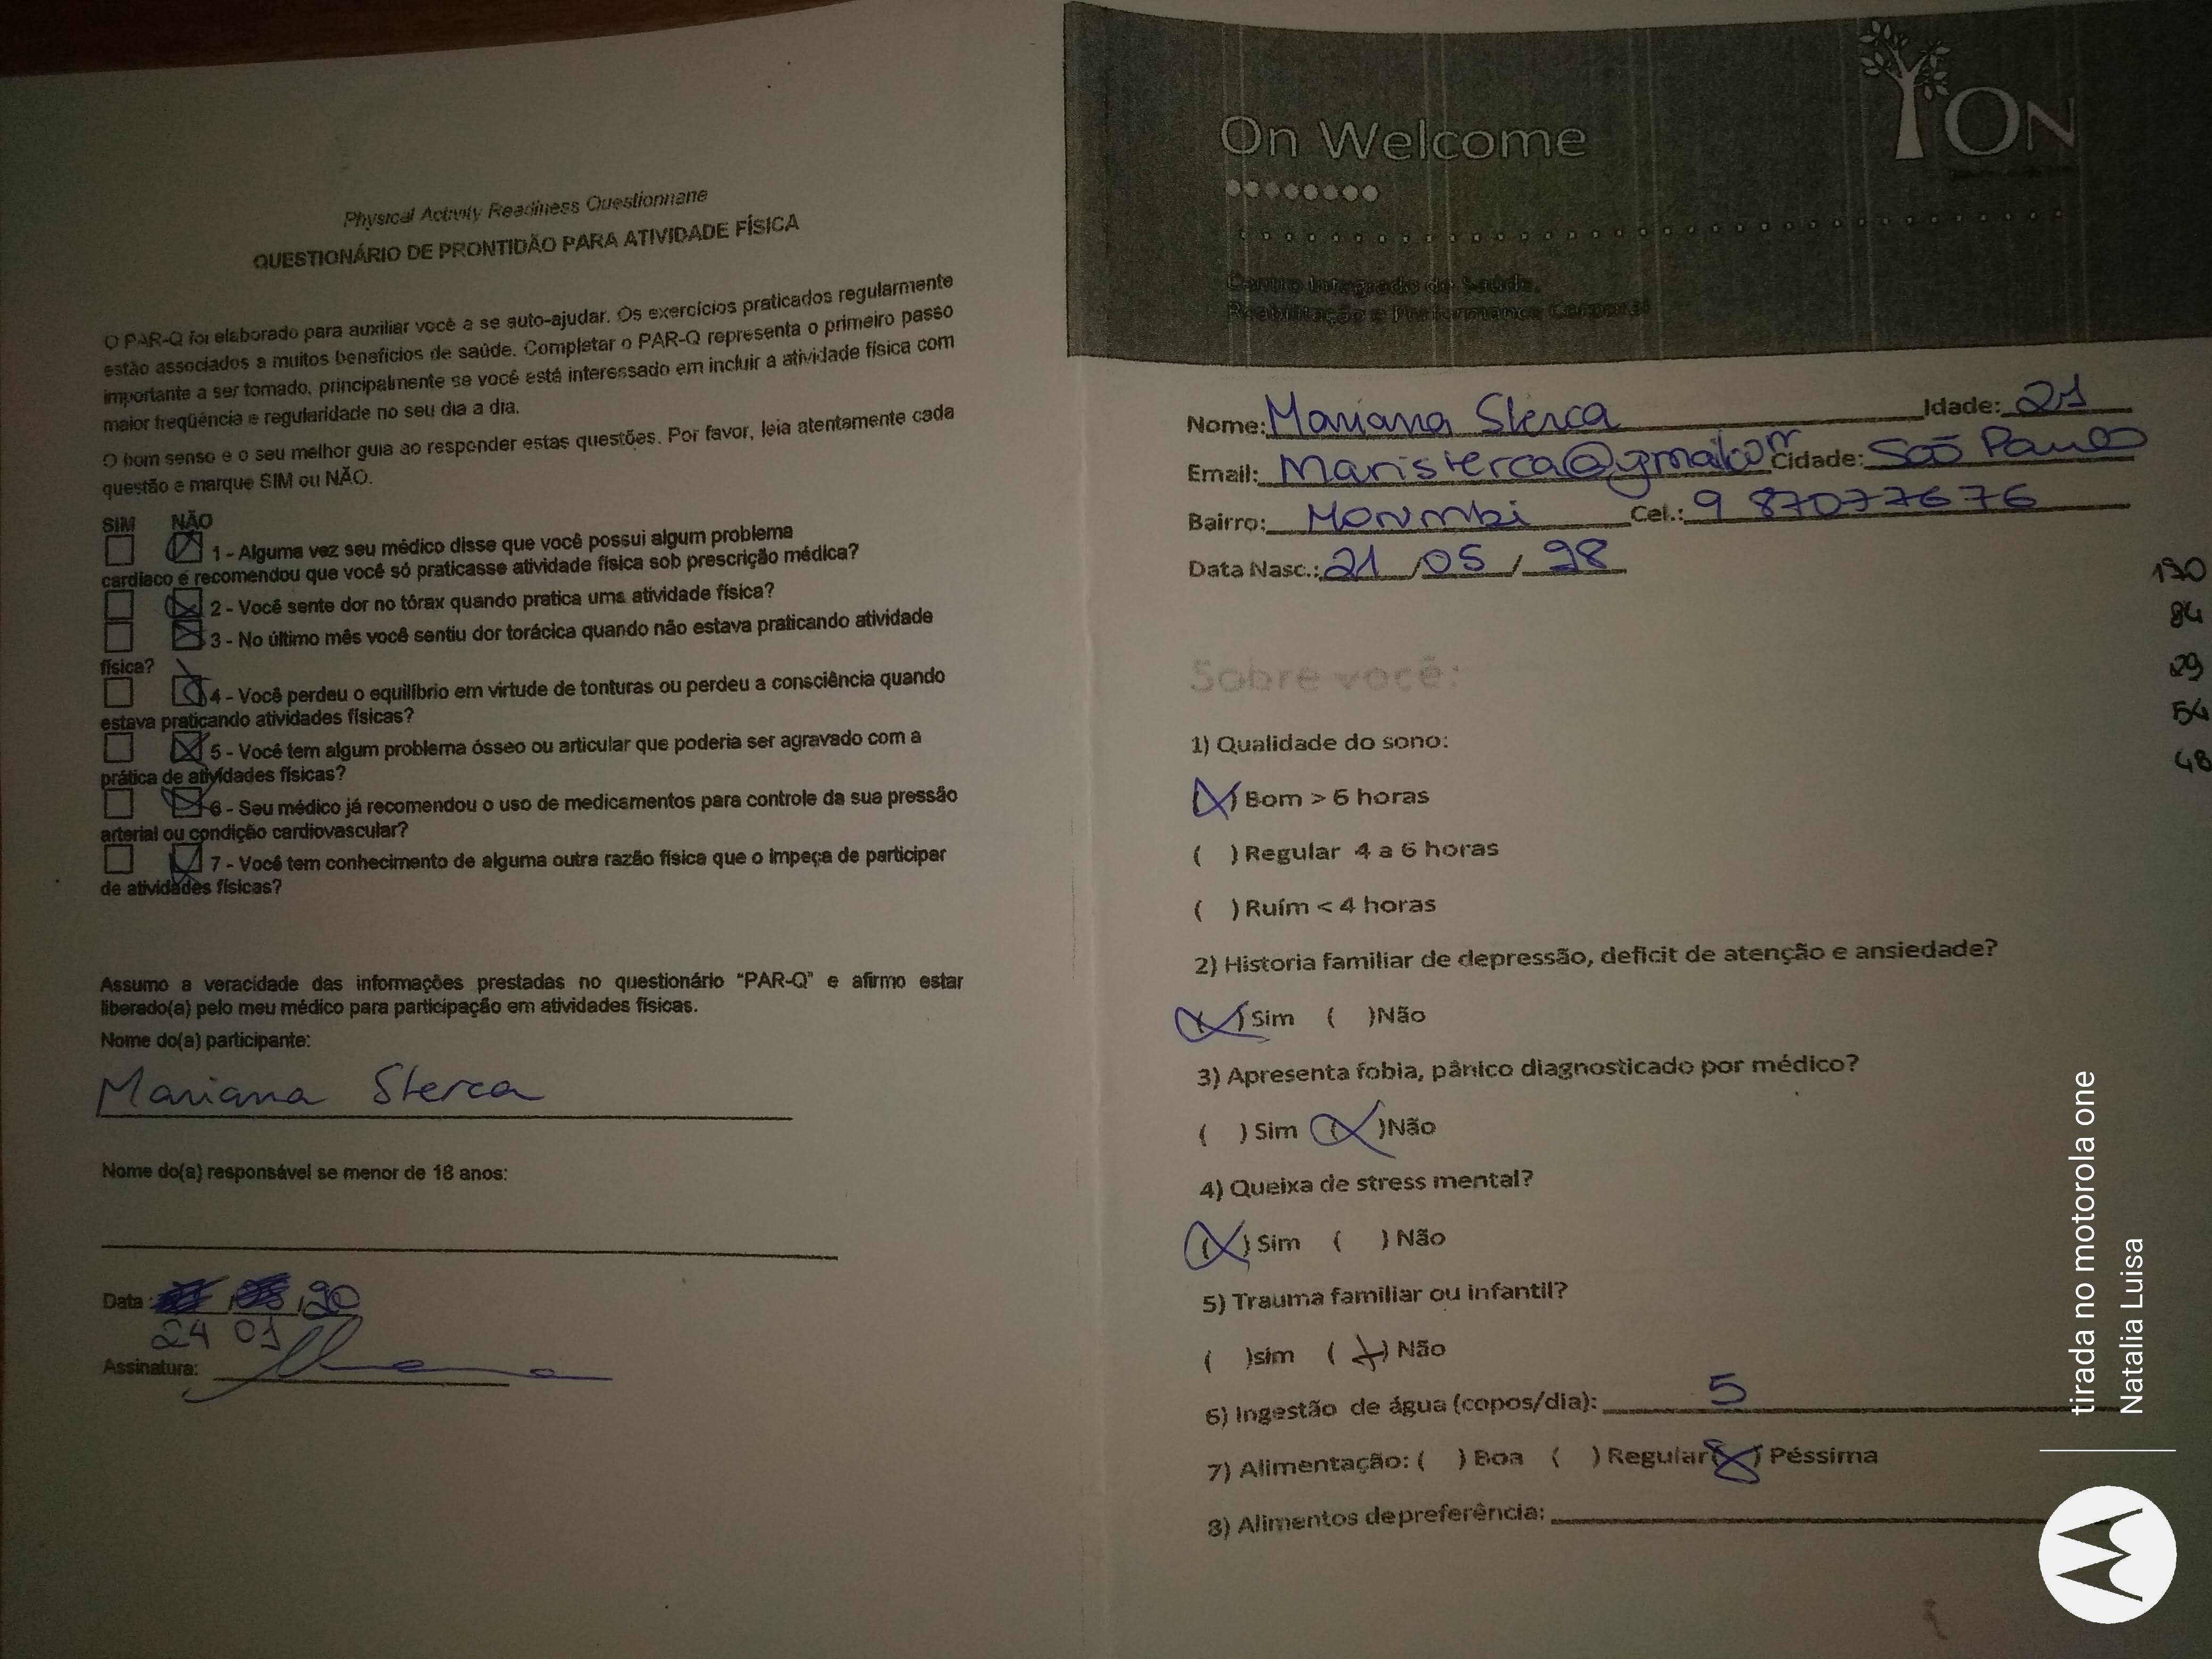 Physical Activity Readiness Questionnaire
QUESTIONÁRIO DE PRONTIDÃO PARA ATIVIDADE FÍSICA
O PAR-Q foi elaborado para auxiliar você a se auto-ajudar. Os exercícios praticados regularmente
estão associados a muitos benefícios de saúde. Completar o PAR-Q representa o primeiro passo
importante a ser tomado, principalmente se você está interessado em incluir a atividade física com
maior freqüência e regularidade no seu dia a dia.
O bom senso é o seu melhor guia ao responder estas questões. Por favor, leia atentamente cada
questão e marque SIM ou NÃO.
SIM NÃO
1 - Alguma vez seu médico disse que você possui algum problema
cardíaco e recomendou que você só praticasse atividade física sob prescrição médica?
2 - Você sente dor no tórax quando pratica uma atividade física?
3 - No último mês você sentiu dor torácica quando não estava praticando atividade
física?
4 - Você perdeu o equilíbrio em virtude de tonturas ou perdeu a consciência quando
estava praticando atividades físicas?
5 - Você tem algum problema ósseo ou articular que poderia ser agravado com a
prática de atividades físicas?
6 - Seu médico já recomendou o uso de medicamentos para controle da sua pressão
arterial ou condição cardiovascular?
7 - Você tem conhecimento de alguma outra razão física que o impeça de participar
de atividades físicas?
Assumo a veracidade das informações prestadas no questionário "PAR-Q" e afirmo estar
liberado(a) pelo meu médico para participação em atividades físicas.
Nome do(a) participante:
Mariana Sterca
Nome do(a) responsável se menor de 18 anos:
Data: 20
24 01
Assinatura:
On Welcome
ON
Centro Integrado de Saúde,
Reabilitação e Performance Corporal
Nome: Mariana Sterca Idade: 21
Email: maristerca@gmail.com Cidade: São Paulo
Bairro: Morumbi Cel.: 9 87077676
Data Nasc.: 21/05/98
Sobre você:
1) Qualidade do sono:
(X) Bom > 6 horas
( ) Regular 4 a 6 horas
( ) Ruím < 4 horas
2) Historia familiar de depressão, deficit de atenção e ansiedade?
(X) Sim ( )Não
3) Apresenta fobia, pânico diagnosticado por médico?
( ) Sim (X)Não
4) Queixa de stress mental?
(X) Sim ( ) Não
5) Trauma familiar ou infantil?
( )sim (X) Não
6) Ingestão de água (copos/dia): 5
7) Alimentação: ( ) Boa ( ) Regular (X) Péssima
8) Alimentos de preferência:
190
84
29
54
48
tirada no motorola one
Natalia Luisa